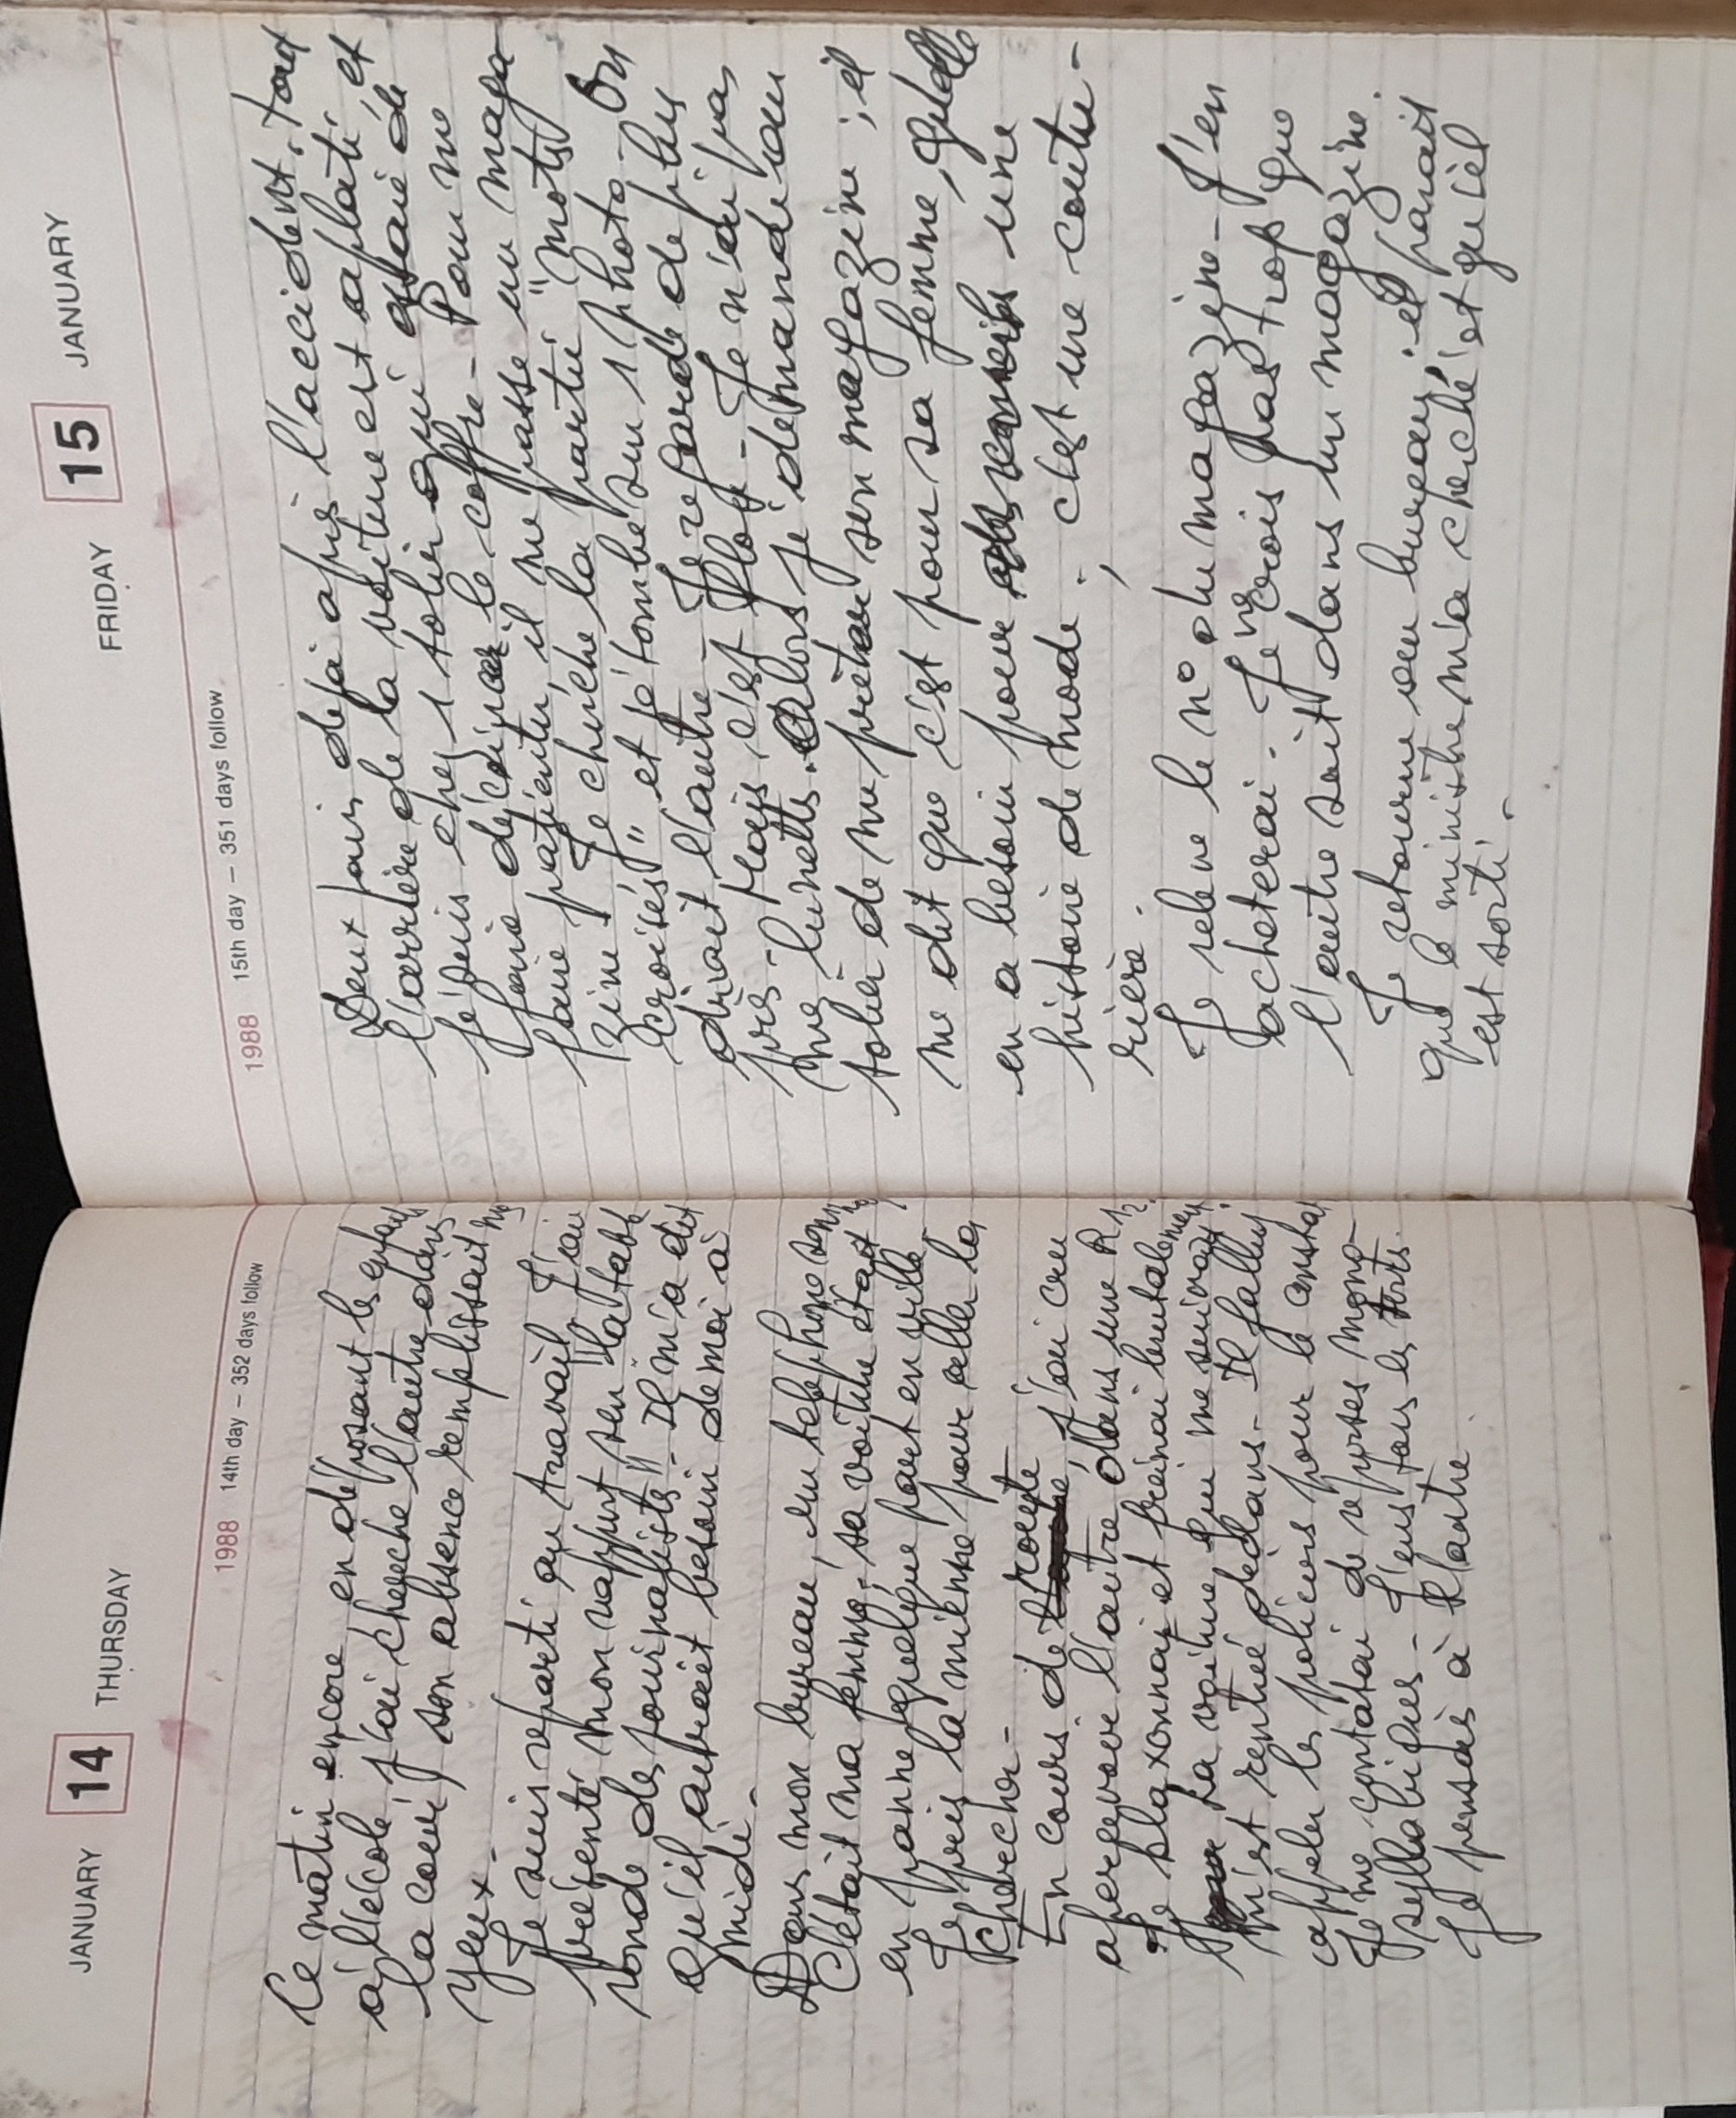 JANUARY 14 THURSDAY
1988 14th day – 352 days follow
Ce matin encore, en déposant les enfants
à l'école, j'ai cherché l'autre dans
la cour; son absence remplissait mes
yeux.
Je suis reparti au travail. J'ai
présenté mon rapport sur "la table
ronde des journalistes". Il m'a dit
qu'il aurait besoin de moi à
midi.
Dans mon bureau, un téléphone sonne
C'était ma femme; sa voiture était
en panne quelque part en ville
Je pris la mienne pour aller la
chercher.
En cours de route, j'ai cru
apercevoir l'autre dans une R12.
Je klaxonnai et freinai brutalement
La voiture qui me suivait
m'est rentrée dedans. Il fallut
appeler les policiers pour le constat
Je me contatai de réponses mono-
syllabiques. J'eus tous les torts.
Je pensais à l'autre.
FRIDAY 15 JANUARY
1988 15th day – 351 days follow
Deux jours déjà après l'accident. Tout
l'arrière de la voiture est aplati, et
je suis chez 1 tolier qui essaie de
faire décoincer le coffre. Pour me
faire patienter, il me passe un maga-
zine. Je cherche la partie "mots
croisés" et je tombe sur 1 photo. On
dirait l'autre. Je regarde de plus
près. Mais, c'est flou. Je n'ai pas
mes lunettes. Alors je demande au
tolier de me prêter son magazine; il
me dit que c'est pour sa femme, qu'elle
en a besoin pour une
histoire de mode; c'est une coutu-
rière.
Je relève le n° du magazine. J'en
acheterai. Je ne crois pas trop que
l'autre soit dans un magazine.
Je retourne au bureau; il parait
que le ministre m'a cherché et qu'il
est sorti.